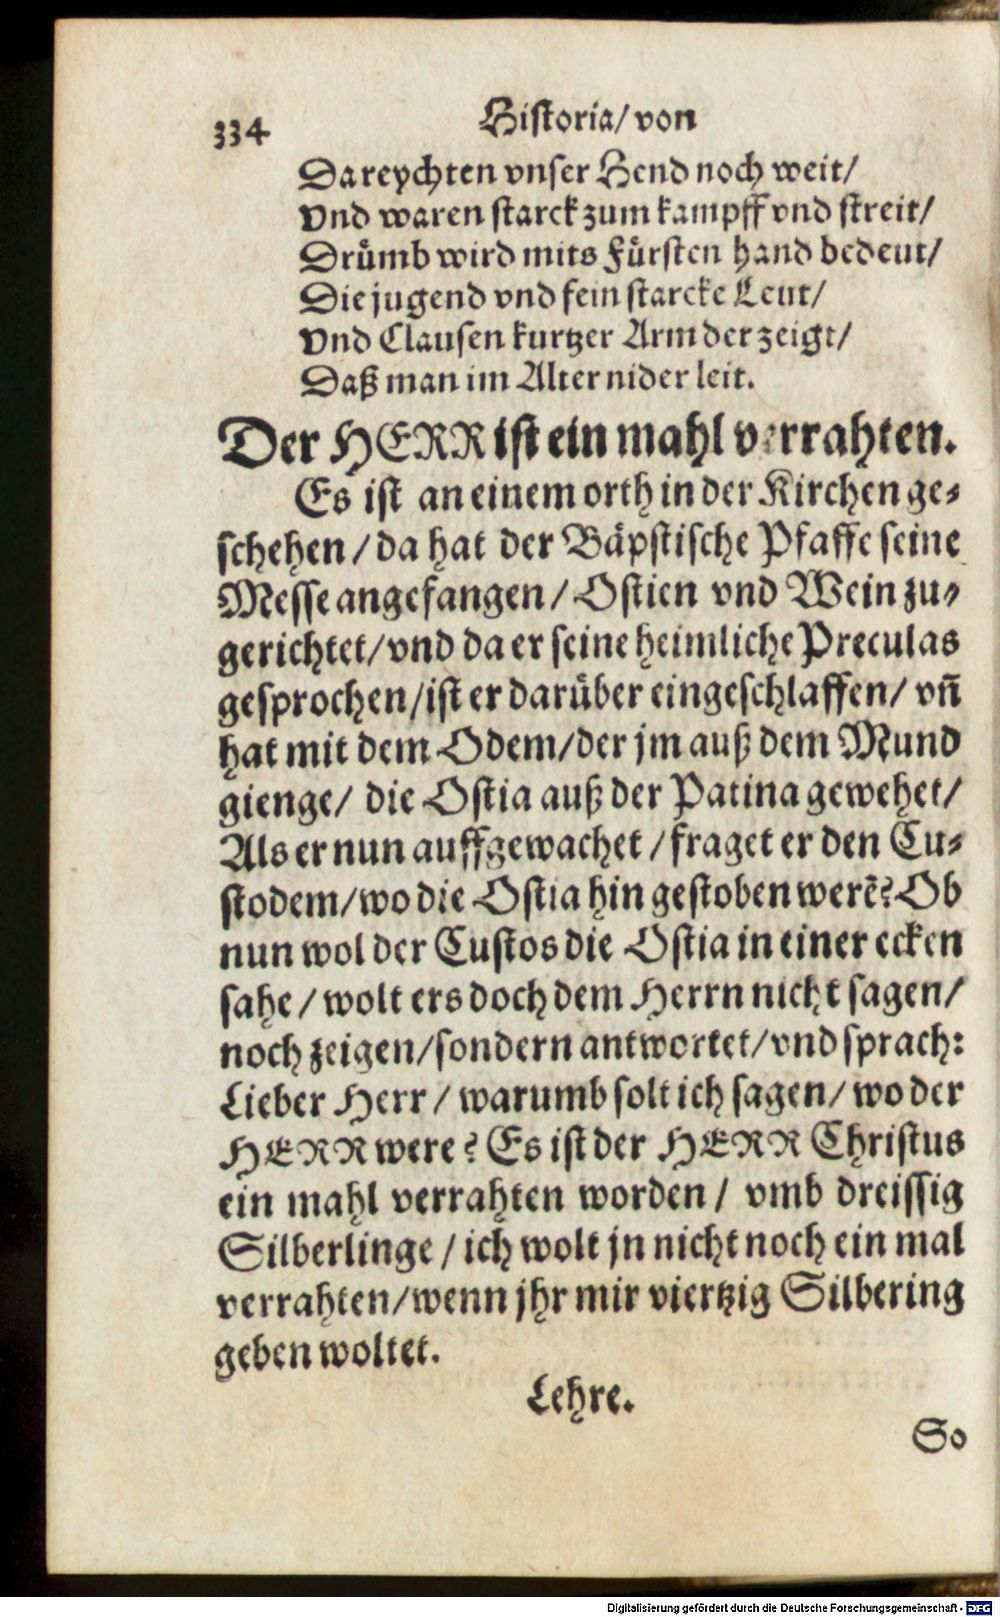 334
Historia/ von
Da reychten vnser Hend noch weit/
Vnd waren starck zum kampff vnd streit/
Drümb wird mits Fürsten hand bedeut/
Die jugend vnd fein starcke Leut/
Vnd Clausen kurtzer Arm der zeigt/
Daß man im Alter nider leit.
Der HERR ist ein mahl verrahten.
Es ist an einem orth in der Kirchen ge-
schehen/ da hat der Bäpstische Pfaffe seine
Messe angefangen/ Ostien vnd Wein zu-
gerichtet/ vnd da er seine heimliche Preculas
gesprochen/ ist er darüber eingeschlaffen/ vñ
hat mit dem Odem/ der jm auß dem Mund
gienge/ die Ostia auß der Patina gewehet/
Als er nun auffgewachet/ fraget er den Cu-
stodem/ wo die Ostia hin gestoben werẽ? Ob
nun wol der Custos die Ostia in einer ecken
sahe/ wolt ers doch dem Herrn nicht sagen/
noch zeigen/ sondern antwortet/ vnd sprach:
Lieber Herr/ warumb solt ich sagen/ wo der
HERR were? Es ist der HERR Christus
ein mahl verrahten worden/ vmb dreissig
Silberlinge/ ich wolt jn nicht noch ein mal
verrahten/ wenn jhr mir viertzig Silbering
geben woltet.
Lehre.
So
Digitalisierung gefördert durch die Deutsche Forschungsgemeinschaft - DFG